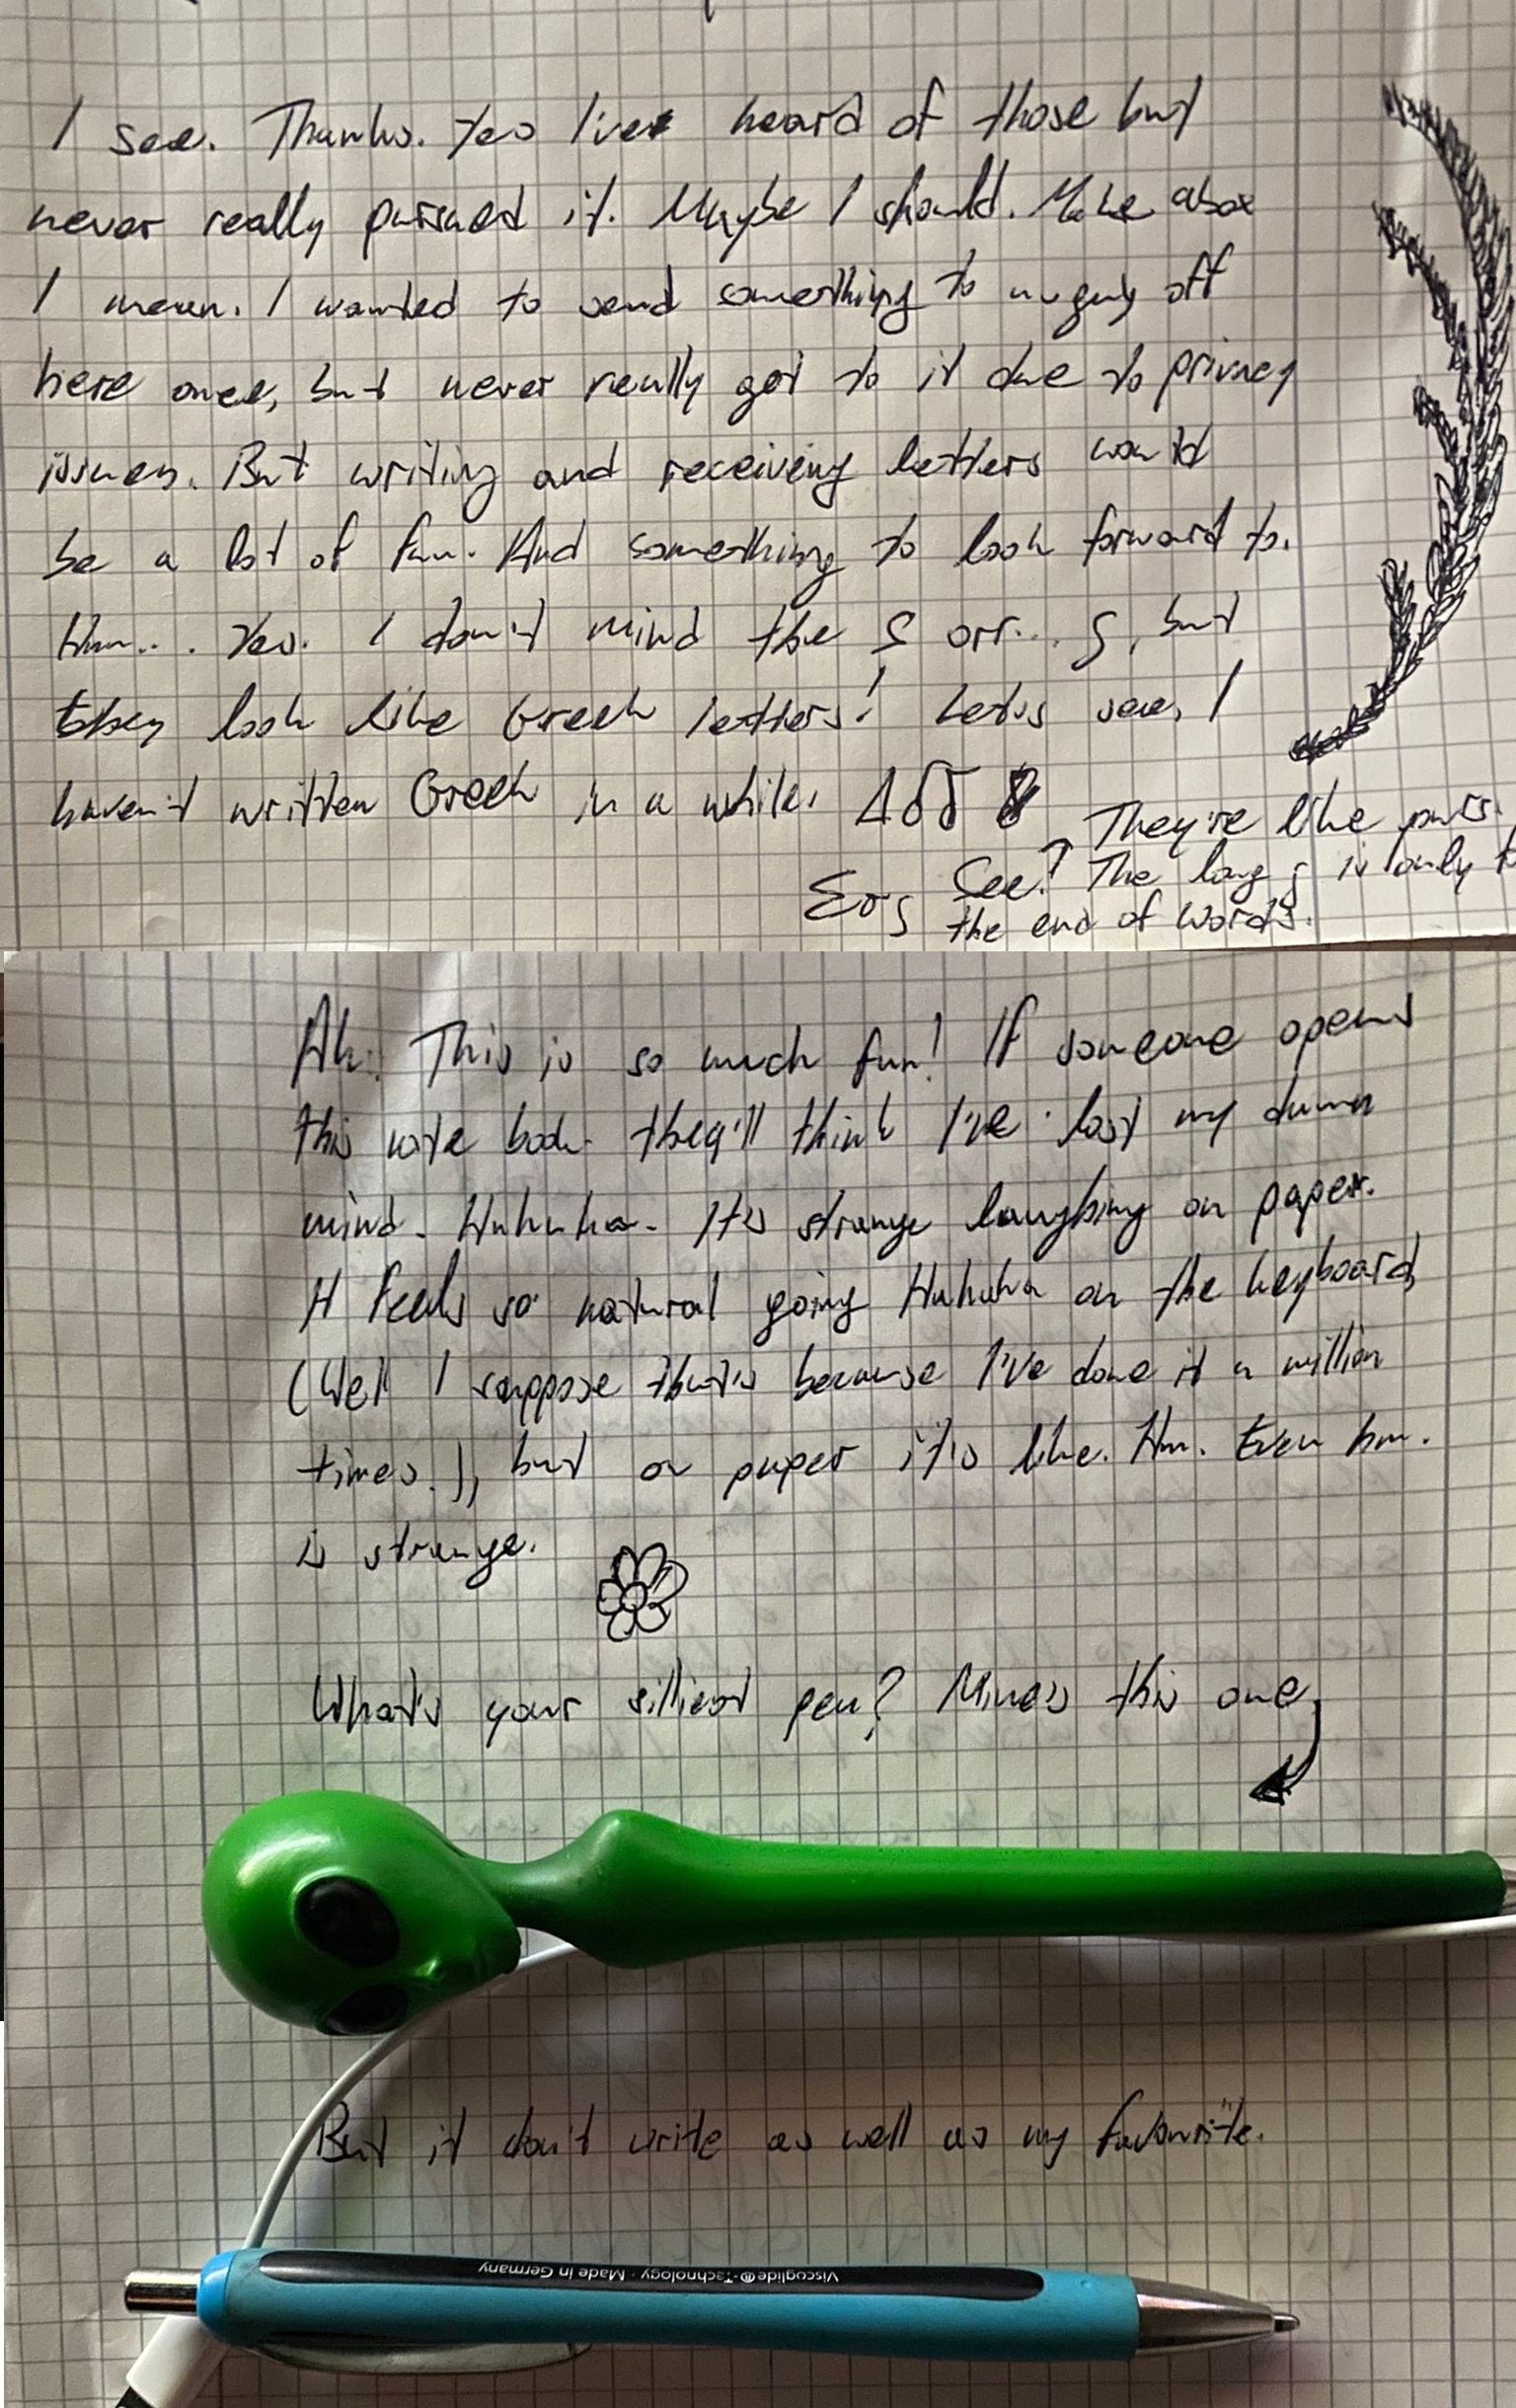 I see. Thanks. Yes I've heard of those but
never really pursued it. Maybe I should. Make abox
I mean. I wanted to send something to a guy off
here once, but never really got to it due to privacy
issues. But writing and receiving letters would
be a lot of fun. And something to look forward to.
Hm... Yes. I don't mind the S orr... ς, but
they look like Greek letters! Let's see, I
haven't written Greek in a while.
They're like yours.
See? The long ς is only
Σος the end of words.
Ah. This is so much fun! If someone opens
this note book they'll think I've lost my damn
mind. Hahaha. It's strange laughing on paper.
It feels so natural going Hahaha on the keyboard,
(Well I suppose that's because I've done it a million
times.), but on paper it's like. Hm. Even hm.
is strange.
What's your silliest pen? Mine's this one
But it don't write as well as my favourite.
Viscoglide®-Technology · Made in Germany